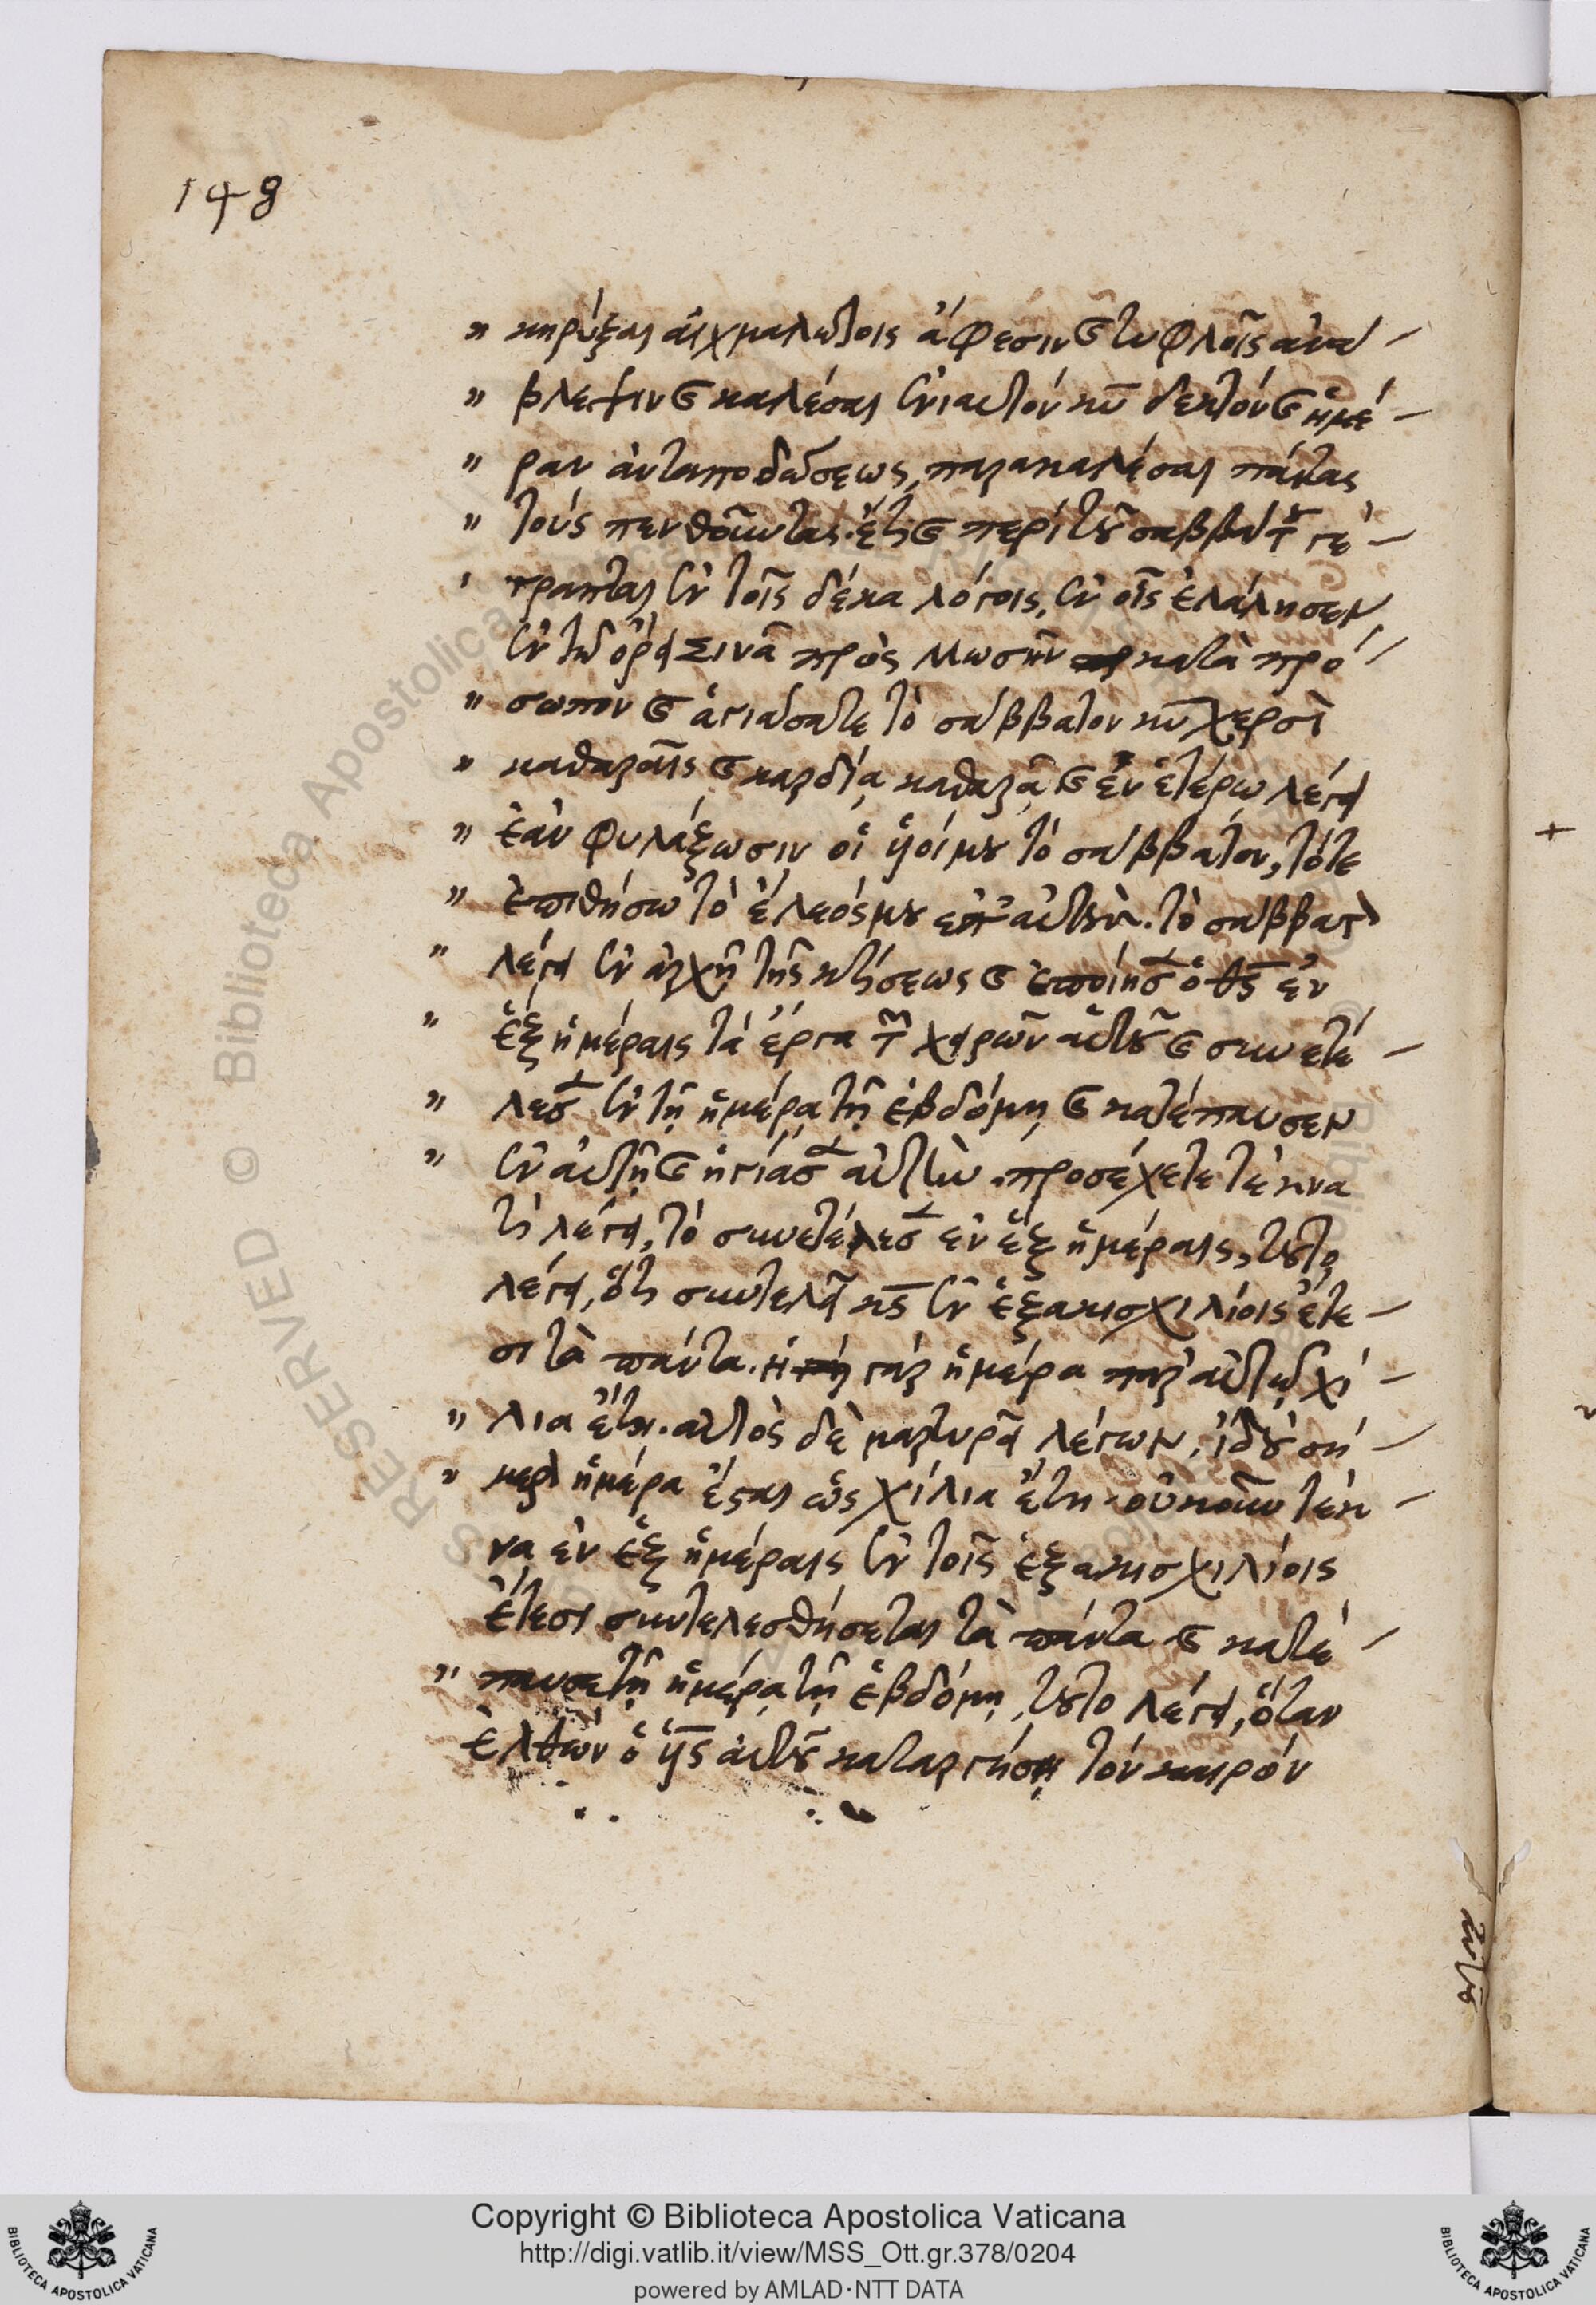 148
κηρύξαι αἰχμαλώτοις ἄφεσιν ϗ τυφλοῖς ἀνά
βλεψιν ϗ καλέσαι ἐνιαυτόν κυ̅ δεκτόν ϗ ἡμέ
ραν ἀνταποδώσεως, παρακαλέσαι πάντας
τούς πενθοῦντας. ἔτι ϗ περί τοῦ σαββάτου γέ
γραπται ἐν τοῖς δέκα λόγοις, ἐν οἷς ἐλάλησεν
ἐν τῷ ὄρει Σινᾶ πρὸς Μωσῆν κατὰ πρό
σωπον ϗ ἁγιάσατε τὸ σάββατον κυ̅ χερσὶ
καθαραῖς ϗ καρδίᾳ καθαρᾷ ϗ ἐν ἑτέρω λέγει
ἐάν φυλάξωσιν οἱ ὑοί μου τό σάββατον, τότε
ἐπιθήσω τὸ ἔλεός μου ἐπ' αὐτούς. τὸ σάββατον
λέγει ἐν ἀρχῇ τῆς κτίσεως ϗ ἐποίησεν ὁ θς̅ ἐν
ἕξ ἡμέραις τά ἔργα τῶν χειρῶν αὐτοῦ ϗ συνετέ
λεσεν ἐν τῇ ἡμέρᾳ τῇ ἑβδόμῃ ϗ κατέπαυσεν
ἐν αὐτῇ ϗ ἡγίασεν αὐτὴν. προσέχετε τέκνα
τί λέγει, τό συνετέλεσεν ἐν ἕξ ἡμέραις, τοῦτο
λέγει, ὅτι συντελεῖ κς̅ ἐν ἑξακισχιλίοις ἔτε
σι τὰ πάντα. ἡ γάρ ἡμέρα παρ' αὐτῷ χί
λια ἔτη. αὐτὸς δὲ μαρτυρεῖ λέγων, ἰδού σή
μερον ἡμέρα ἔσται ὡς χίλια ἔτη. οὐκοῦν τέκ
να ἐν ἕξ ἡμέραις ἐν τοῖς ἑξακισχιλίοις
ἔτεσι συντελεσθήσεται τὰ πάντα ϗ κατέ
παυσε τῇ ἡμέρᾳ τῇ ἑβδόμῃ, τοῦτο λέγει, ὅταν
ἐλθών ὁ ὑς̅ αὐτοῦ καταργήσῃ τόν καιρόν
αὐτοῦ
RESERVED © Biblioteca Apostolica
Copyright © Biblioteca Apostolica Vaticana
http://digi.vatlib.it/view/MSS_Ott.gr.378/0204
powered by AMLAD·NTT DATA
BIBLIOTECA APOSTOLICA VATICANA
BIBLIOTECA APOSTOLICA VATICANA